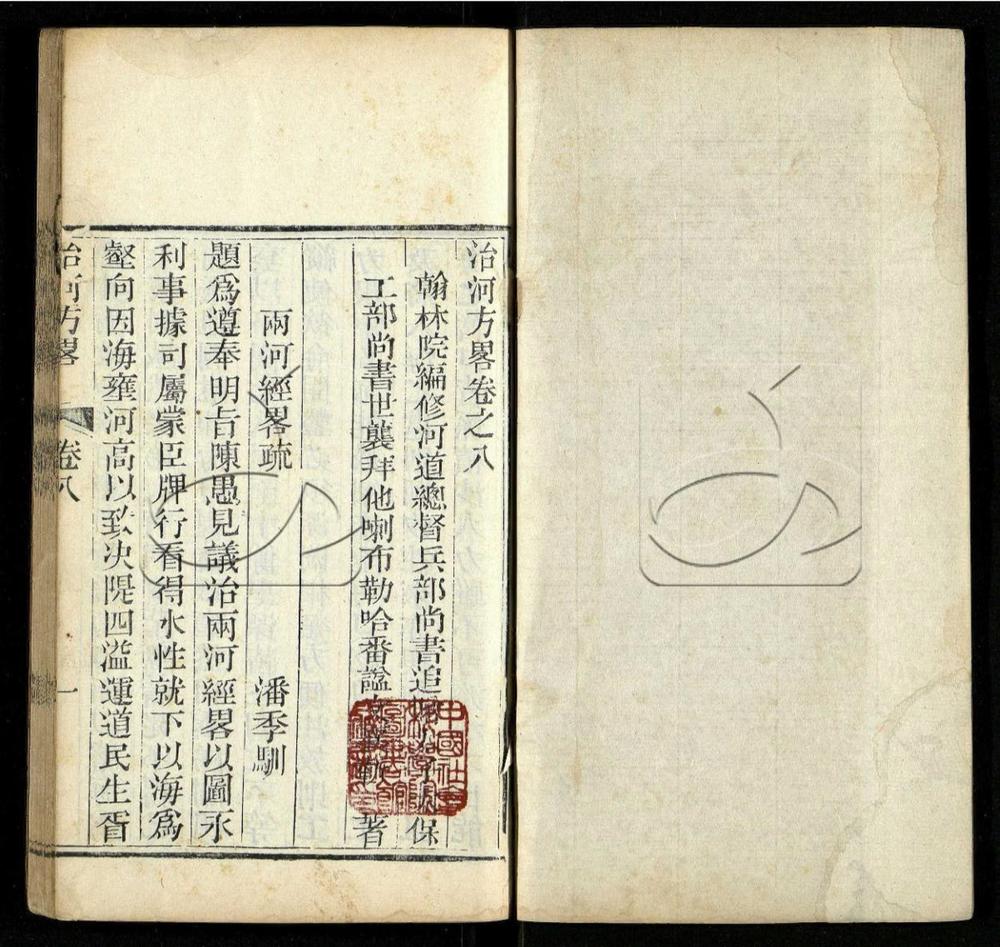 治河方畧卷之八
翰林院編修河道總督兵部尚書追 保
工部尚書世襲拜他喇布勒哈番諡 著
兩河經畧疏 潘季馴
題爲遵奉明旨陳愚見議治兩河經畧以圖永
利事據司屬蒙臣牌行看得水性就下以海爲
壑向因海壅河高以致决隄四溢運道民生胥
治河方畧 卷八 一
中國社會